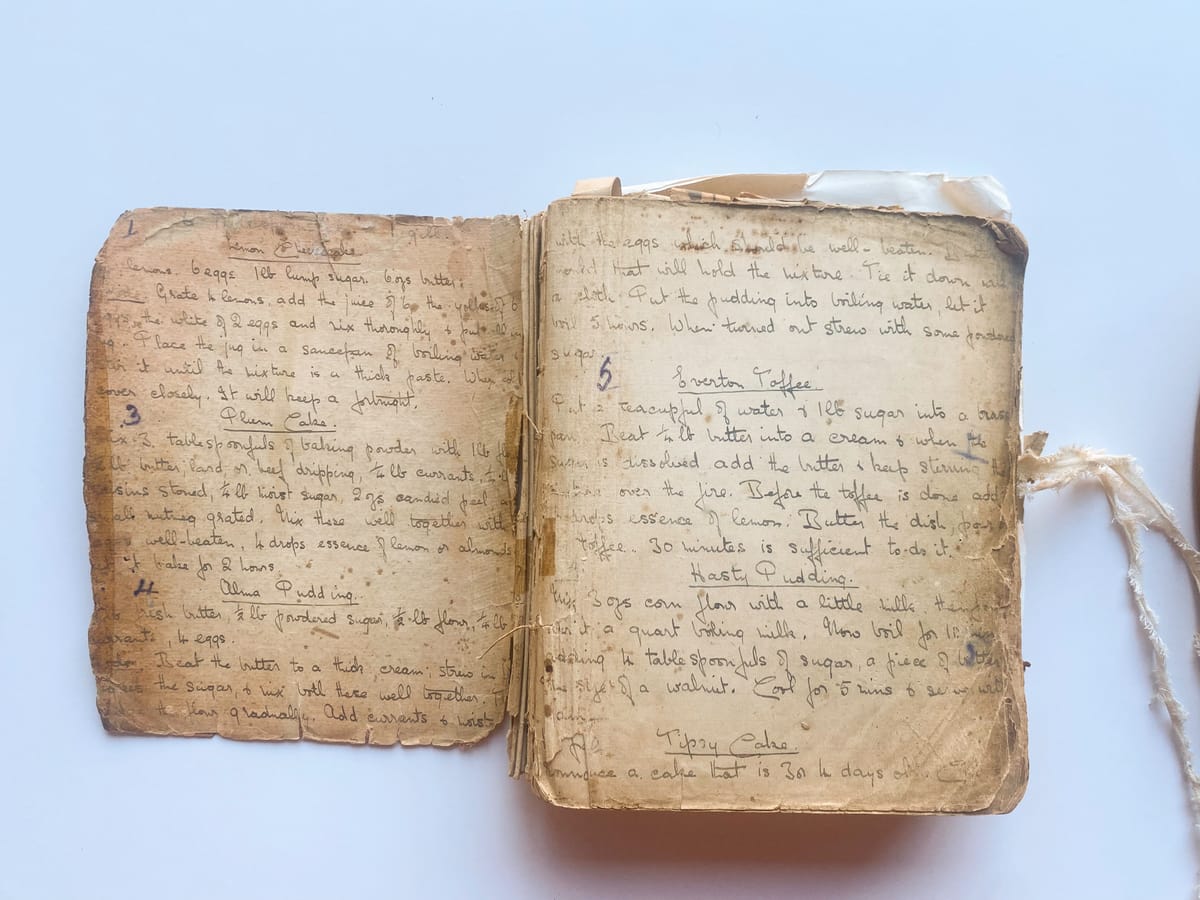 1
Lemon Cheesecake.
lemons. 6 eggs 1lb lump sugar. 6 ozs butter.
Grate 4 lemons, add the juice of 6, the yolks of 6
the white of 2 eggs and mix thoroughly & put
Place the jug in a saucepan of boiling water &
it until the mixture is a thick paste. When
cover closely. It will keep a fortnight.
3
Plum Cake.
3 tablespoonfuls of baking powder with 1lb
butter, lard, or beef dripping, ¼ lb currants,
stoned, ¼ lb moist sugar, 2 ozs candied peel
small nutmeg grated. Mix these well together with
well-beaten, 4 drops essence of lemon or almonds
bake for 2 hours.
4
Alma Pudding.
fresh butter, ½ lb powdered sugar, ½ lb flour, ¼ lb
currants, 4 eggs.
Beat the butter to a thick cream, strew in
the sugar, & mix both these well together,
the flour gradually. Add currants & moist
with the eggs which should be well-beaten.
mould that will hold the mixture. Tie it down with
a cloth. Put the pudding into boiling water, let it
boil 5 hours. When turned out strew with some powdered
sugar.
5
Everton Toffee.
Put 2 teacupful of water & 1lb sugar into a brass
pan. Beat ¼ lb butter into a cream & when the
sugar is dissolved add the butter & keep stirring the
mixture over the fire. Before the toffee is done add
drops essence of lemon. Butter the dish, pour
toffee. 30 minutes is sufficient to do it.
Hasty Pudding.
Mix 3 ozs corn flour with a little milk, then
it a quart boiling milk. Now boil for
adding 4 tablespoonfuls of sugar, a piece of butter
the size of a walnut. Cool for 5 mins & serve with
jam.
Tipsy Cake.
a cake that is 3 or 4 days old.